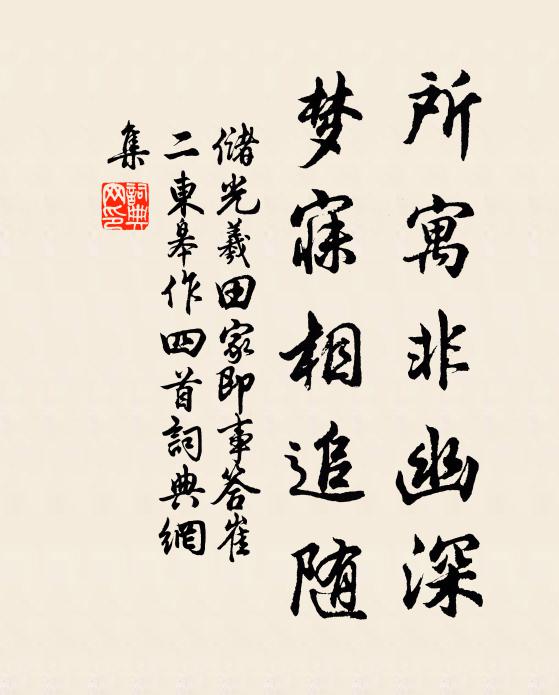 所寓非幽深
梦寐相追随
储光羲田家即事答崔
二東皋作四首詞典網
集
詞典
网印